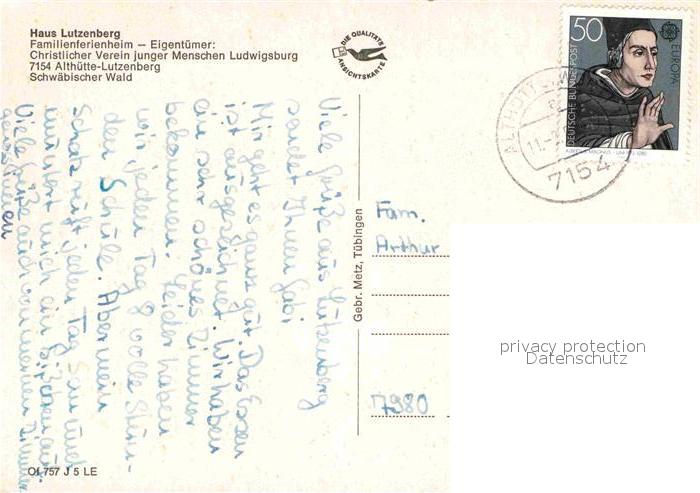 Haus Lutzenberg
Familienferienheim – Eigentümer:
Christlicher Verein junger Menschen Ludwigsburg
7154 Althütte-Lutzenberg
Schwäbischer Wald
DIE QUALITÄTS
ANSICHTSKARTE
50
DEUTSCHE BUNDESPOST
EUROPA
ALBERTUS MAGNUS
ALTHÜTTE
11.
7154
Viele Grüße aus Lutzenberg
sendet Ihnen Gabi
Mir geht es ganz gut. Das Essen
ist ausgezeichnet. Wir haben
ein sehr schönes Zimmer
bekommen. Leider haben
wir jeden Tag 8 volle Stun-
den Schule. Aber mein
Schatz ruft jeden Tag an und
muntert mich ein bißchen auf.
Viele Grüße auch von meinen Zimmer
genossinnen
Gebr. Metz, Tübingen
Fam.
Arthur
7980
privacy protection
Datenschutz
Of 757 J 5 LE